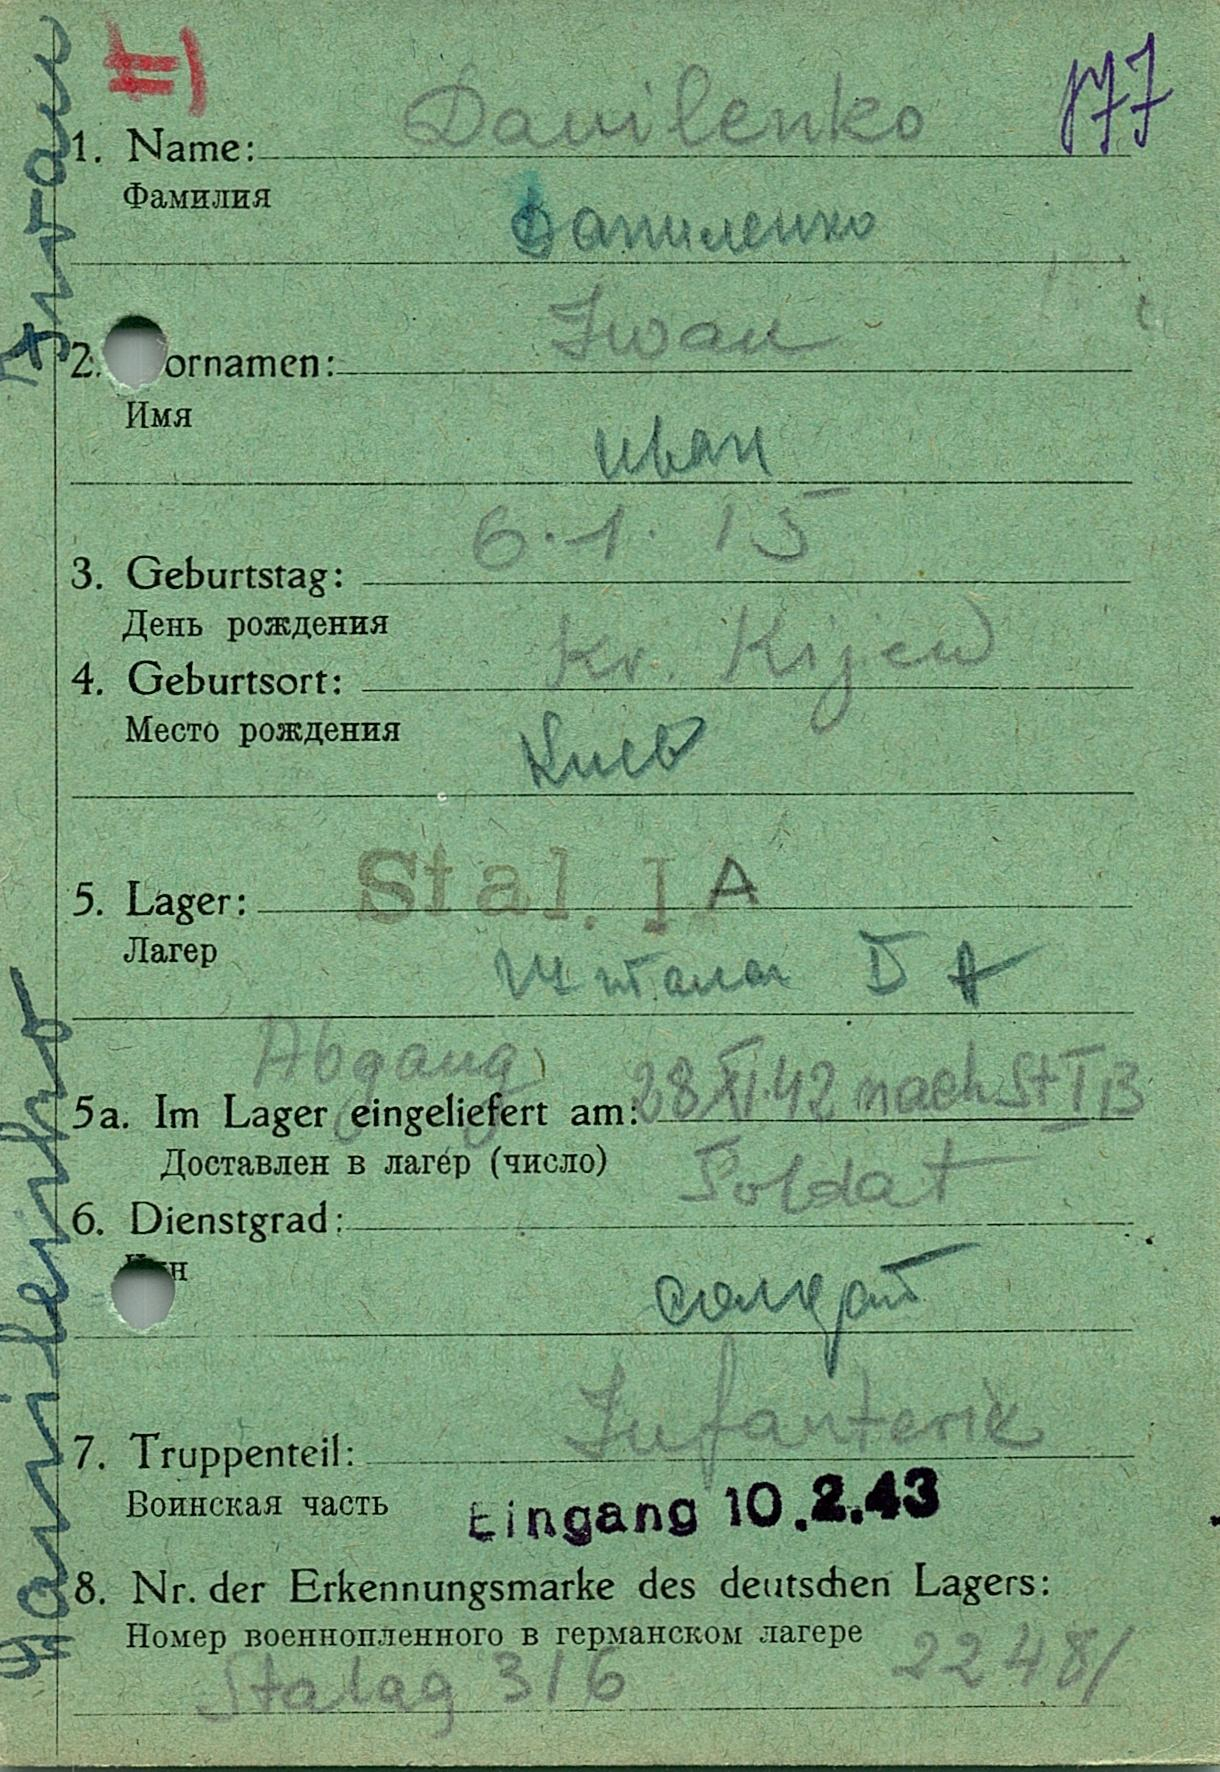 177
Dawilenko
1. Name:
Фамилия
Даниленко
Iwan
2. ornamen:
Имя
иван
6.1.15
3. Geburtstag:
День рождения
Kr. Kijew
4. Geburtsort:
Место рождения
Киев
5. Lager: Stal. I A
Лагер
Шталаг I А
Abgang 28 XI.42 nach St I B
5a. Im Lager eingeliefert am:
Доставлен в лагер (число)
Soldat
6. Dienstgrad:
солдат
Infanterie
7. Truppenteil:
Воинская часть
Eingang 10.2.43
8. Nr. der Erkennungsmarke des deutschen Lagers:
Номер военнопленного в германском лагере
Stalag 316 22481
Даниленко Iwan